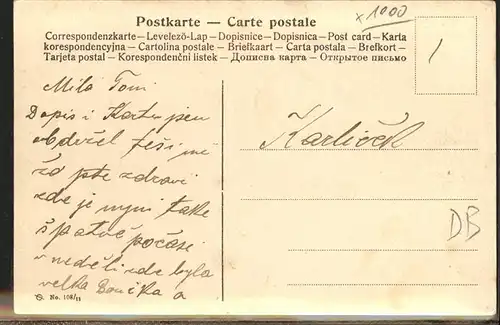 Postkarte — Carte postale
Correspondenzkarte – Levelező-Lap – Dopisnice – Dopisnica – Post card – Karta
korespondencyjna – Cartolina postale – Briefkaart – Carta postala – Brefkort –
Tarjeta postal – Korespondenční listek – Дописна карта – Открытое письмо
x1000
Milo Toni
Dopis i Kartu jsem
obdržel těší mě
že jste zdravi
zde je nyni take
špatné počási
v neděli zde byla
velka a
No. 108/11
Karlíček
DB